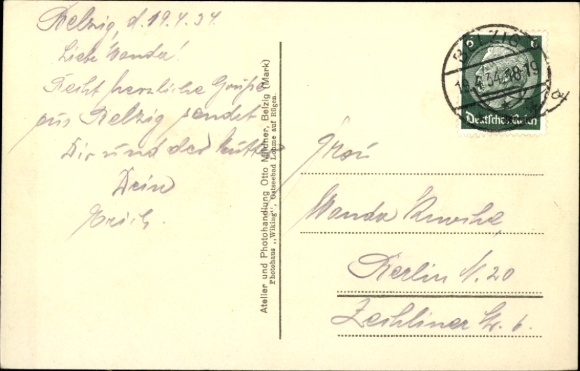 Belzig, d. 19.4.34.
Liebe Wanda!
Recht herzliche Grüße
aus Belzig sendet
Dir und der Mutter
Dein
Erich.
Atelier und Photohandlung Otto Mildner, Belzig (Mark)
Photohaus „Wiking", Ostseebad Lohme auf Rügen.
6 6
Deutsches Reich
BELZIG
19.4.34.18-19
Frau
Wanda
Berlin N. 20
Zechliner Str. 6.